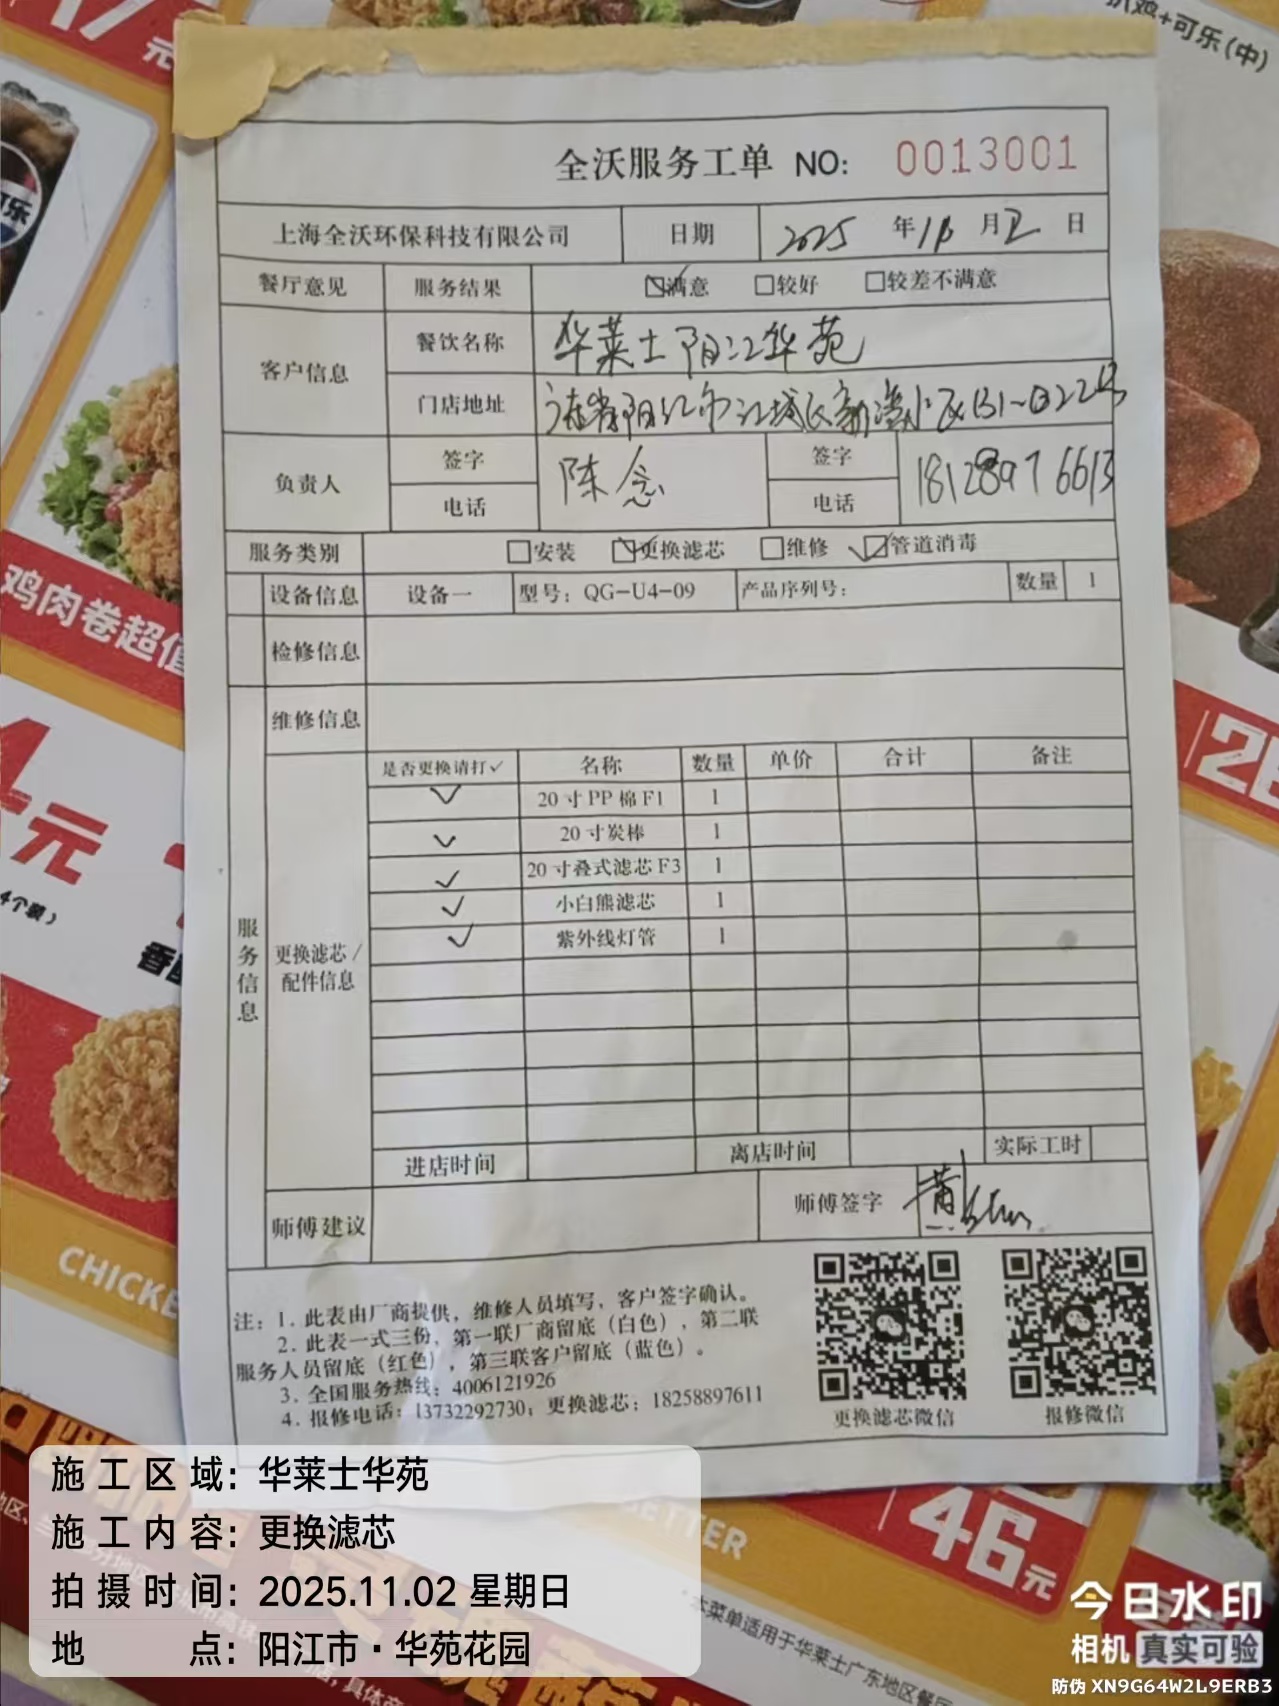 元
扒鸡+可乐(中)
可乐
全沃服务工单 NO: 0013001
上海全沃环保科技有限公司 日期 2025 年 11 月 2 日
餐厅意见 服务结果 ☑满意 □较好 □较差不满意
客户信息 餐饮名称 华莱士阳江华苑
门店地址 阳江市江城区
负责人 签字 陈念 签字
电话 电话 18128976613
服务类别 □安装 ☑更换滤芯 □维修 ☑管道消毒
设备信息 设备一 型号：QG-U4-09 产品序列号： 数量 1
检修信息
维修信息
服务信息
更换滤芯/配件信息
是否更换请打✓ 名称 数量 单价 合计 备注
✓ 20寸PP棉F1 1
✓ 20寸炭棒 1
✓ 20寸叠式滤芯F3 1
✓ 小白熊滤芯 1
✓ 紫外线灯管 1
进店时间 离店时间 实际工时
师傅建议 师傅签字 黄
注：1. 此表由厂商提供，维修人员填写，客户签字确认。
2. 此表一式三份，第一联厂商留底（白色），第二联
服务人员留底（红色），第三联客户留底（蓝色）。
3. 全国服务热线：4006121926
4. 报修电话：13732292730；更换滤芯：18258897611
更换滤芯微信 报修微信
鸡肉卷超值
元
4个装)
CHICKE
BETTER
46元
本菜单适用于华莱士广东地区餐厅
施工区域：华莱士华苑
施工内容：更换滤芯
拍摄时间：2025.11.02 星期日
地 点：阳江市·华苑花园
今日水印
相机 真实可验
防伪 XN9G64W2L9ERB3